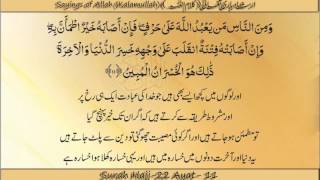 Sayings of Allah (Kalamullah)
وَمِنَ النَّاسِ مَن يَعْبُدُ اللَّهَ عَلَىٰ حَرْفٍ فَإِنْ أَصَابَهُ خَيْرٌ اطْمَأَنَّ بِهِ
وَإِنْ أَصَابَتْهُ فِتْنَةٌ انْقَلَبَ عَلَىٰ وَجْهِهِ خَسِرَ الدُّنْيَا وَالْآخِرَةَ
ذَٰلِكَ هُوَ الْخُسْرَانُ الْمُبِينُ
اور لوگوں میں کچھ ایسے بھی ہیں جو خدا کی عبادت ایک ہی رخ پر
اور مشروط طریقہ سے کرتے ہیں کہ اگر ان تک خیر پہنچ گیا
تو مطمئن ہوجاتے ہیں اور اگر کوئی مصیبت چھو گئی تو دین سے پلٹ جاتے ہیں
یہ دنیا اور آخرت دونوں میں خسارہ میں ہیں اور یہی خسارہ کھلا ہوا خسارہ ہے
Surah Hajj -22 Ayat - 11